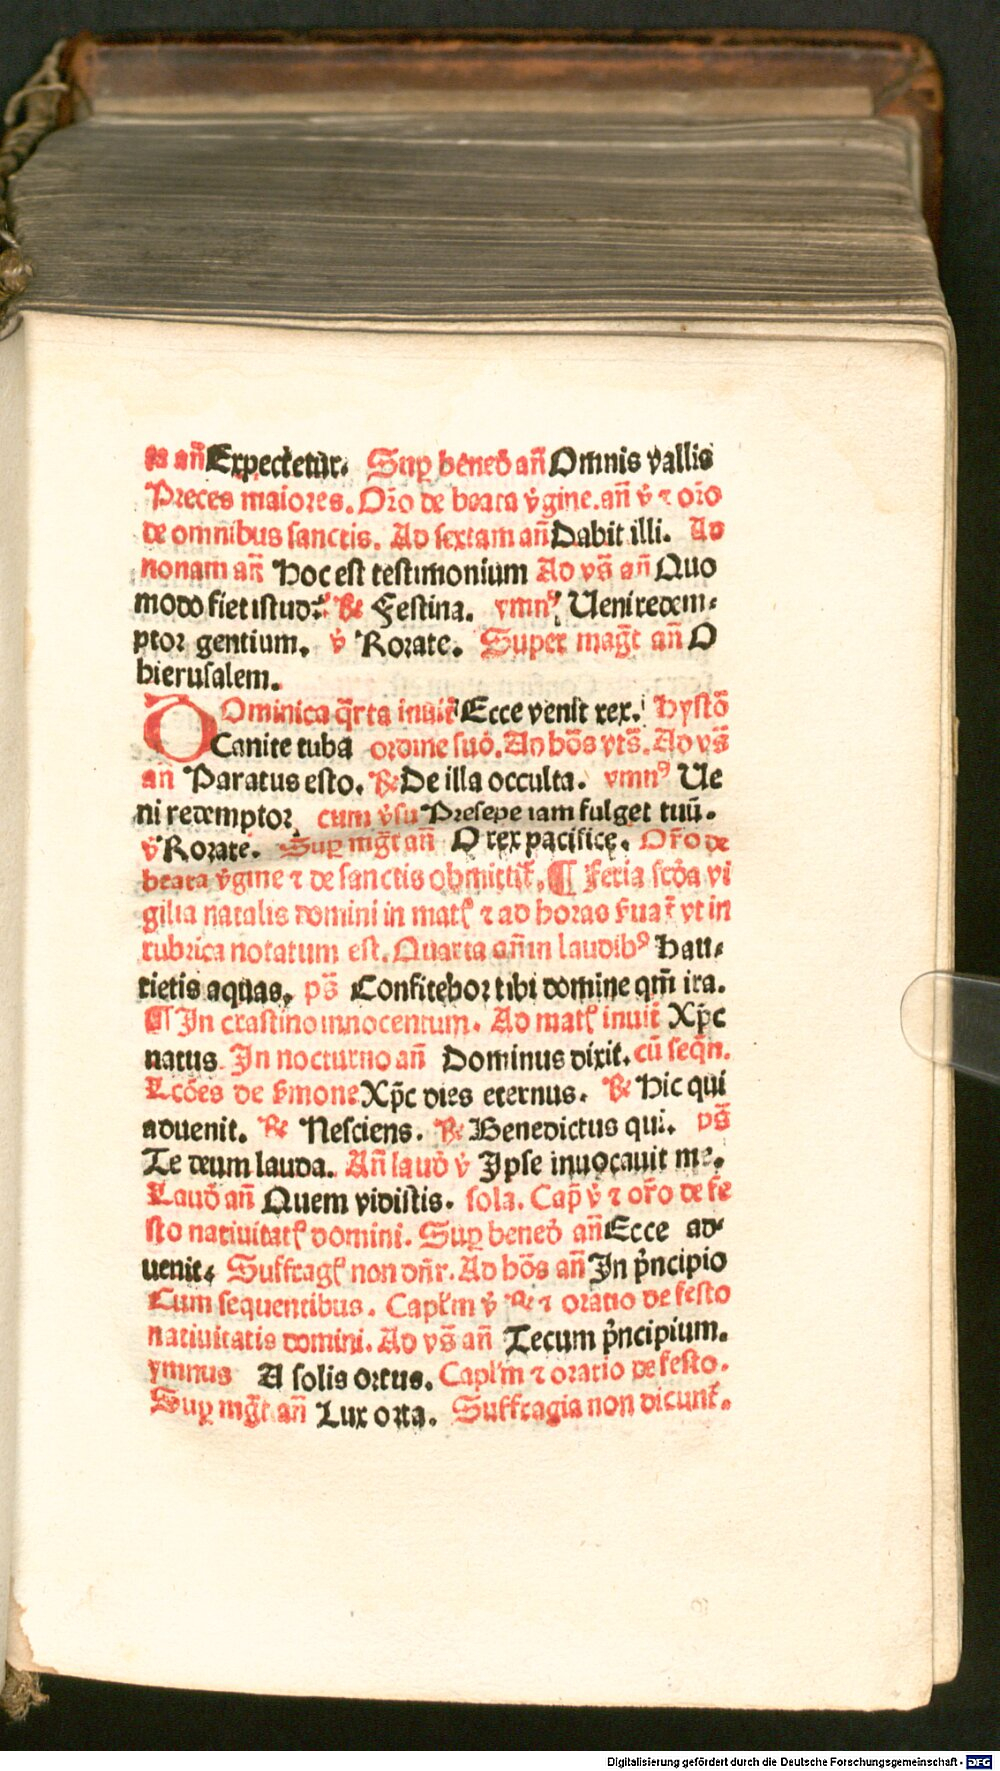 an̄ Expectetur. Suꝑ bened̄ an̄ Omnis vallis
Preces maiores. Or̄o de beata v̄gine. an̄ v̄ ⁊ or̄o
de omnibus sanctis. Ad sextam an̄ Dabit illi. Ad
nonam an̄ Hoc est testimonium Ad vs̄ an̄ Quo
modo fiet istud. ℞ Festina. ymnꝰ Ueni redem⸗
ptor gentium. v̄ Rorate. Super maḡt an̄ O
hierusalem.
DOminica q̄rta inuit̄ Ecce venit rex. Hystō
Canite tuba ordine suo. Ad hōs vts̄. Ad vs̄
an̄ Paratus esto. ℞ De illa occulta. ymnꝰ Ue
ni redemptor cum v̄su Presepe iam fulget tuū.
v̄ Rorate. Suꝑ mḡt an̄ O rex pacifice. Or̄o de
beata v̄gine ⁊ de sanctis obmittit̄. ¶ Feria scd̄a vi
gilia natalis domini in matꝭ ⁊ ad horas ẜuat̄ vt in
rubrica notatum est. Quarta an̄ in laudibꝰ Hau⸗
rietis aquas. ps̄ Confitebor tibi domine qm̄ ira.
¶ In crastino innocentum. Ad matꝭ inuit̄ Xp̄c
natus In nocturno an̄ Dominus dixit. cū seqn̄.
Lcōes de ẜmone Xp̄c dies eternus. ℞ Hic qui
aduenit. ℞ Nesciens. ℞ Benedictus qui. ps̄
Te deum lauda. An̄ laud̄ v̄ Ipse inuocauit me.
Laud̄ an̄ Quem vidistis. sola. Cap̄ v̄ ⁊ or̄o de fe
sto natiuitatꝭ domini. Suꝑ bened̄ an̄ Ecce ad
uenit. Suffragꝭ non dn̄r. Ad hōs an̄ In p̄ncipio
Cum sequentibus. Capl̄m v̄ ℞ ⁊ oratio de festo
natiuitatis domini. Ad vs̄ an̄ Tecum p̄ncipium.
ymnus A solis ortus. Capl̄m ⁊ oratio de festo.
Suꝑ mḡt an̄ Lux orta. Suffragia non dicunt̄.
Digitalisierung gefördert durch die Deutsche Forschungsgemeinschaft - DFG